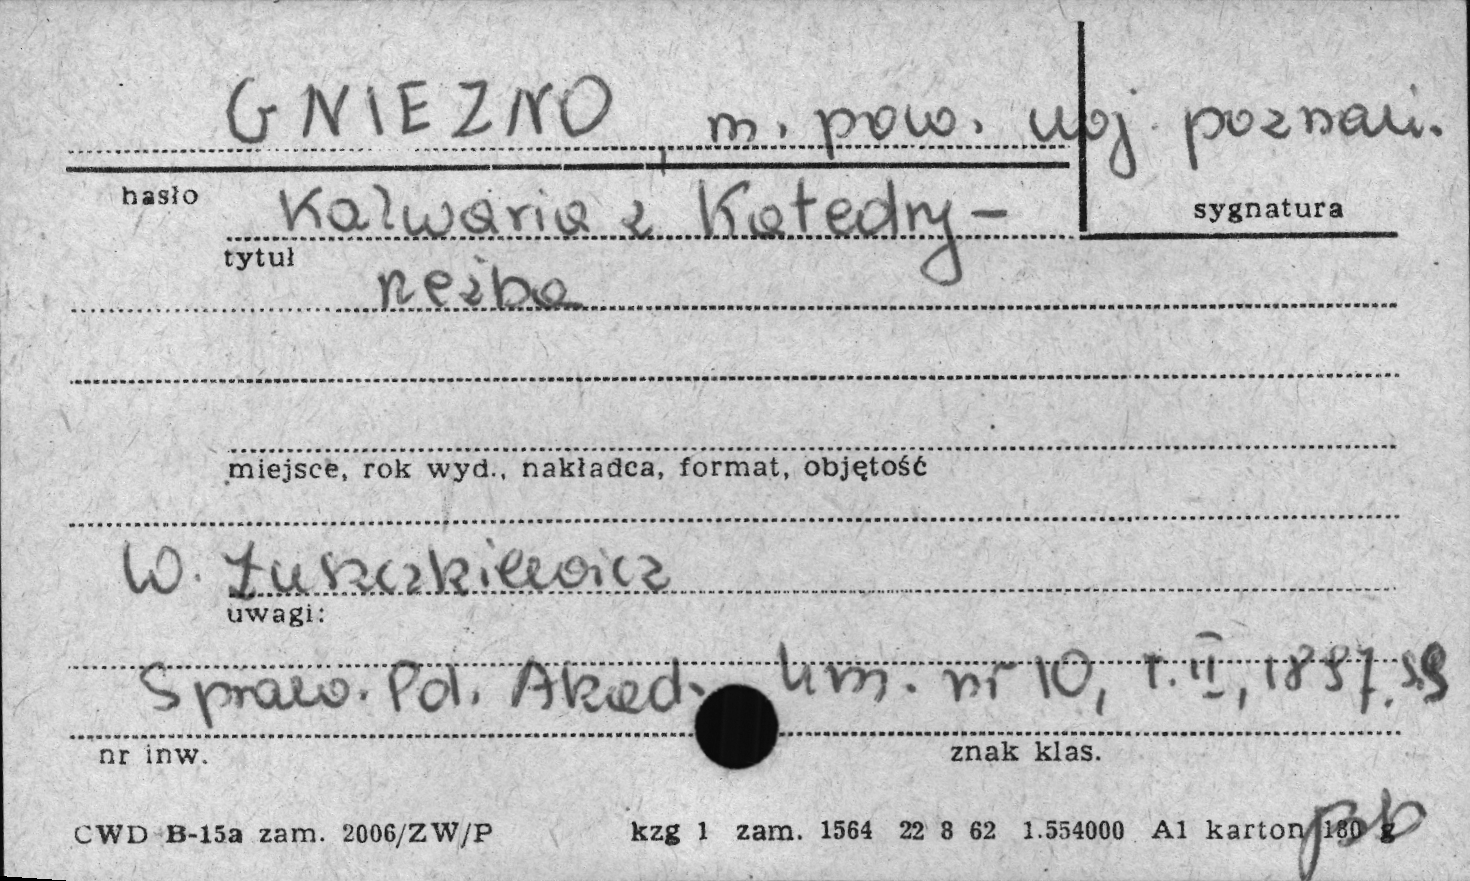 GNIEZNO m. pow. woj. poznań.
hasło
sygnatura
Kalwaria z Katedry -
tytuł
rzeźba
miejsce, rok wyd., nakładca, format, objętość
W. Łuszczkiewicz
uwagi:
Spraw. Pol. Akad. Um. nr 10, T. II, 1897, s.9
nr inw.
znak klas.
CWD B-15a zam. 2006/ZW/P kzg 1 zam. 1564 22 8 62 1.554000 A1 karton 180 g